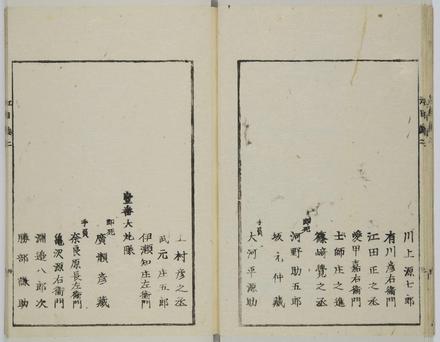 川上源七郎
有川彦右衛門
江田正之丞
愛甲嘉右衛門
士師庄之進
篠﨑覺之丞
即死
河野助五郎
坂元仲藏
手負
大河平源助
村彦之丞
武元庄五郎
伊瀬知庄左衛門
壹番大炮隊
即死
廣瀬彦藏
手負
奈良原長左衛門
亀沢源右衛門
淵邉八郎次
勝部謙助